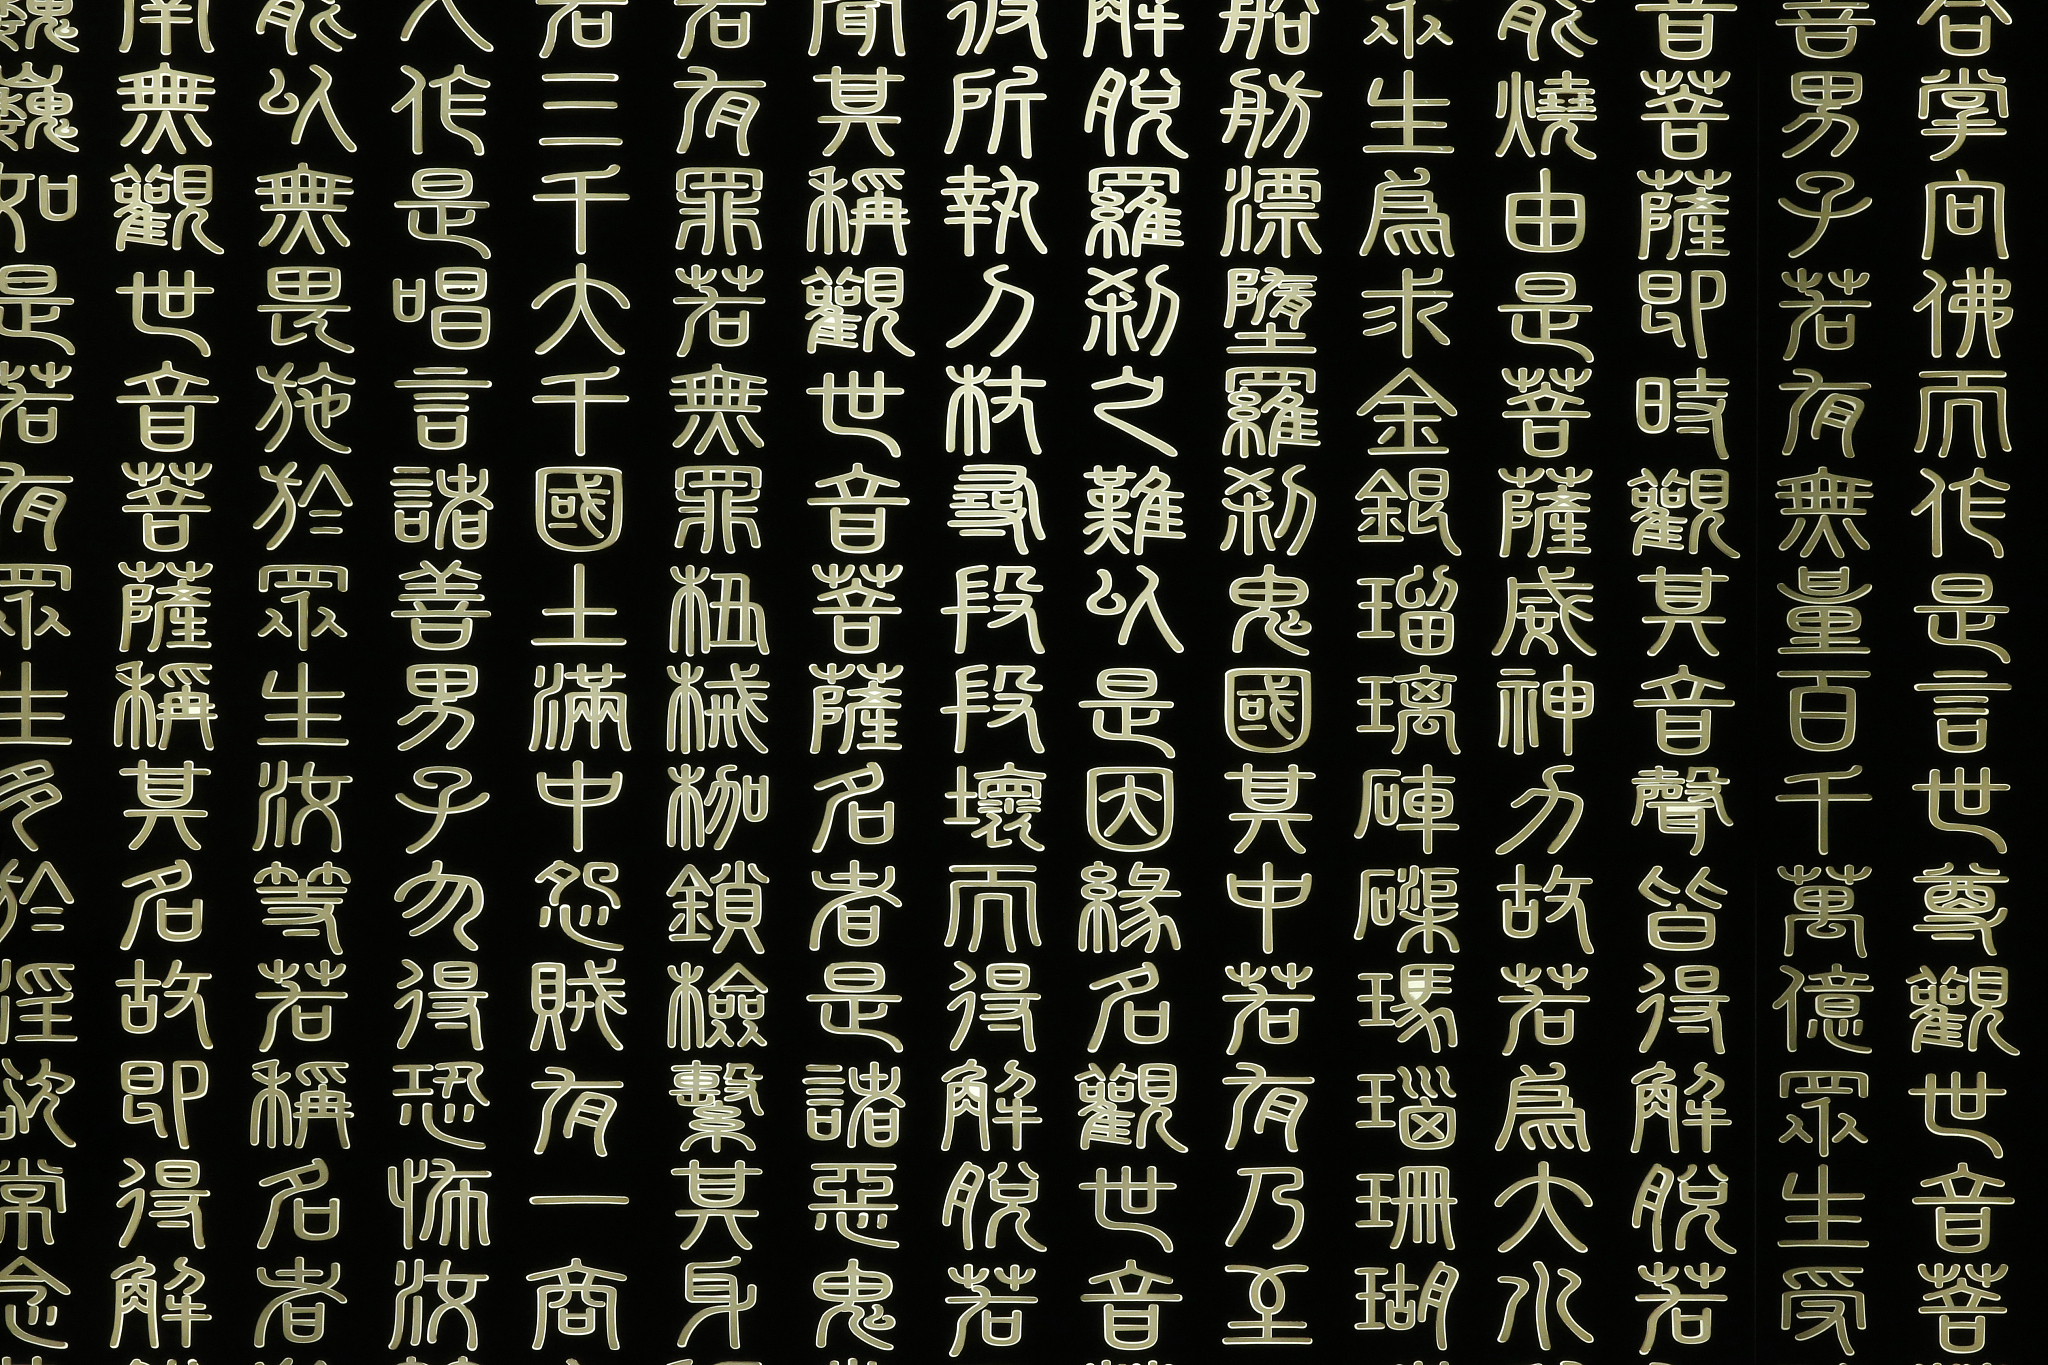 合掌向佛而作是言世尊觀世音菩
善男子若有無量百千萬億眾生受
音菩薩即時觀其音聲皆得解脫若
能燒由是菩薩威神力故若為大水
眾生為求金銀瑠璃硨磲瑪瑙珊瑚
船舫漂墮羅剎鬼國其中若有乃至
解脫羅剎之難以是因緣名觀世音
彼所執刀杖尋段段壞而得解脫若
聞其稱觀世音菩薩名者是諸惡鬼
若有罪若無罪杻械枷鎖檢繫其身
若三千大千國土滿中怨賊有一商
人作是唱言諸善男子勿得恐怖汝
能以無畏施於眾生汝等若稱名者
南無觀世音菩薩稱其名故即得解
巍巍如是若有眾生多於淫欲常念